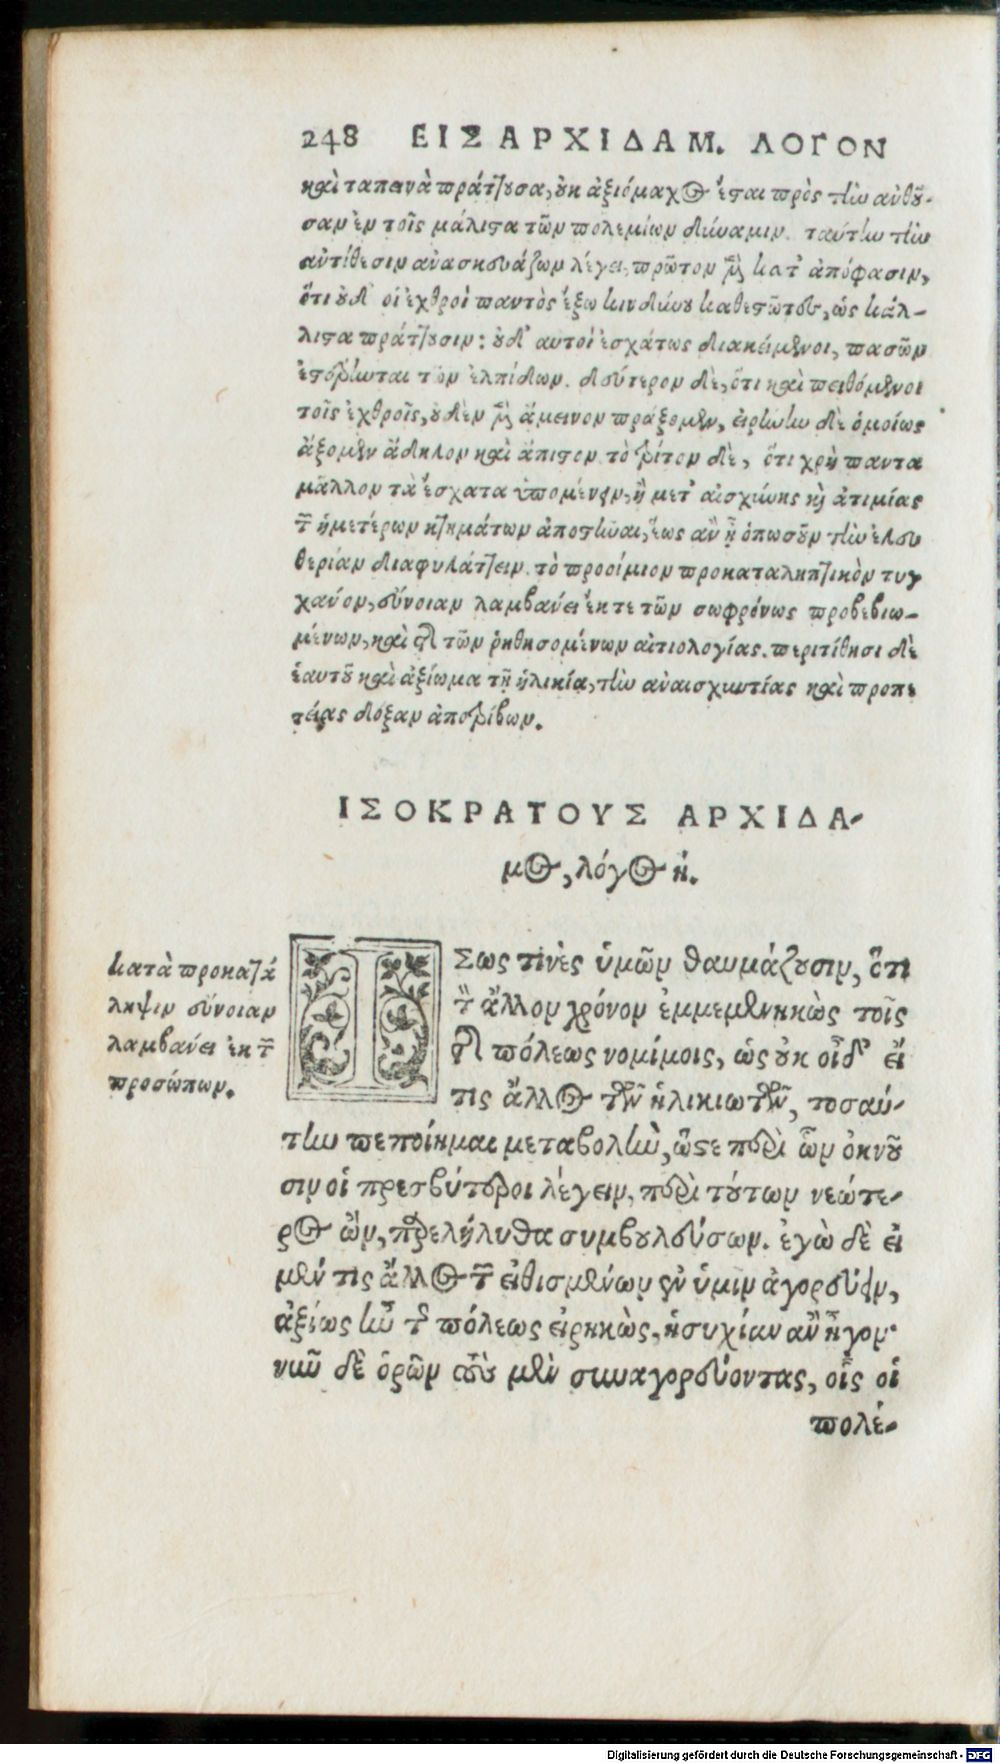 248 ΕΙΣ ΑΡΧΙΔΑΜ. ΛΟΓΟΝ
καὶ ταπεινὰ πράττουσα, οὐκ ἀξιόμαχος ἔσται πρὸς τὴν ἀνθοῦ-
σαν ἐν τοῖς μάλιστα τῶν πολεμίων δύναμιν. ταύτην τὴν
ἀντίθεσιν ἀνασκευάζων λέγει, πρῶτον μὲν κατ' ἀπόφασιν,
ὅτι οὐδ' οἱ ἐχθροὶ παντὸς ἔξω κινδύνου καθεστῶτες, ὡς κάλ-
λιστα πράττουσιν: οὐδ' αὐτοὶ ἐσχάτως διακείμενοι, πασῶν
ἐστέρηνται τῶν ἐλπίδων. δεύτερον δὲ, ὅτι καὶ πειθόμενοι
τοῖς ἐχθροῖς, οὐδὲν μὲν ἄμεινον πράξομεν, εἰρήνην δὲ ὁμοίως
ἄξομεν ἄδηλον καὶ ἄπιστον. τὸ τρίτον δὲ, ὅτι χρὴ παντα
μᾶλλον τὰ ἔσχατα ὑπομένειν, ἢ μετ' αἰσχύνης καὶ ἀτιμίας
τῶν ἡμετέρων κτημάτων ἀποστῆναι, ἕως ἂν ᾖ ὁπωσοῦν τὴν ἐλευ
θερίαν διαφυλάττειν. τὸ προοίμιον προκαταληπτικὸν τυγ
χάνον, εὔνοιαν λαμβάνει ἔκ τε τῶν σωφρόνως προβεβιω-
μένων, καὶ τῆς τῶν ῥηθησομένων αἰτιολογίας. περιτίθησι δὲ
ἑαυτοῦ καὶ ἀξίωμα τῇ ἡλικίᾳ, τὴν ἀναισχυντίας καὶ προπε
τείας δόξαν ἀποτρίβων.
ΙΣΟΚΡΑΤΟΥΣ ΑΡΧΙΔΑ-
μος, λόγος ἡ.
κατὰ προκατά
ληψιν εὔνοιαν
λαμβάνει ἐκ τῶν
προσώπων.
ΙΣως τινὲς ὑμῶν θαυμάζουσιν, ὅτι
τὸν ἄλλον χρόνον ἐμμεμενηκὼς τοῖς
τῆς πόλεως νομίμοις, ὡς οὐκ οἶδ' εἴ
τις ἄλλος τῶν ἡλικιωτῶν, τοσαύ-
την πεποίημαι μεταβολὴν, ὥστε περὶ ὧν ὀκνοῦ
σιν οἱ πρεσβύτεροι λέγειν, περὶ τούτων νεώτε-
ρος ὢν, παρελήλυθα συμβουλεύσων. ἐγὼ δὲ εἰ
μέν τις ἄλλος τῶν εἰθισμένων ἐν ὑμῖν ἀγορεύειν,
ἀξίως ἦν τῆς πόλεως εἰρηκὼς, ἡσυχίαν ἂν ἦγον·
νῦν δὲ ὁρῶν τοὺς μὲν συναγορεύοντας, οἷς οἱ
πολέ-
Digitalisierung gefördert durch die Deutsche Forschungsgemeinschaft - DFG